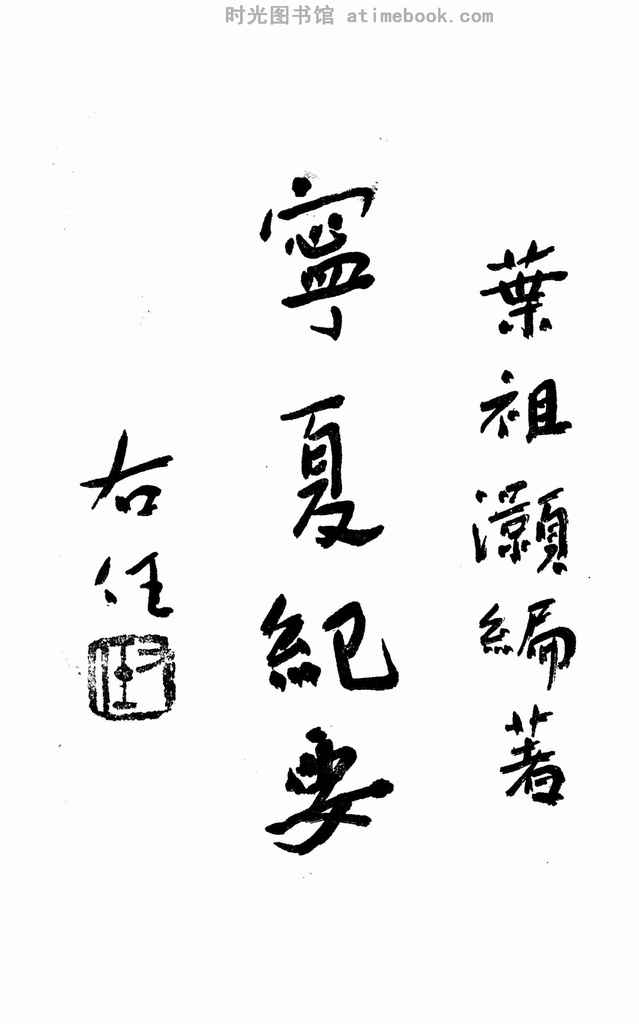 时光图书馆 atimebook.com
葉祖灝編著
寧夏紀要
右任